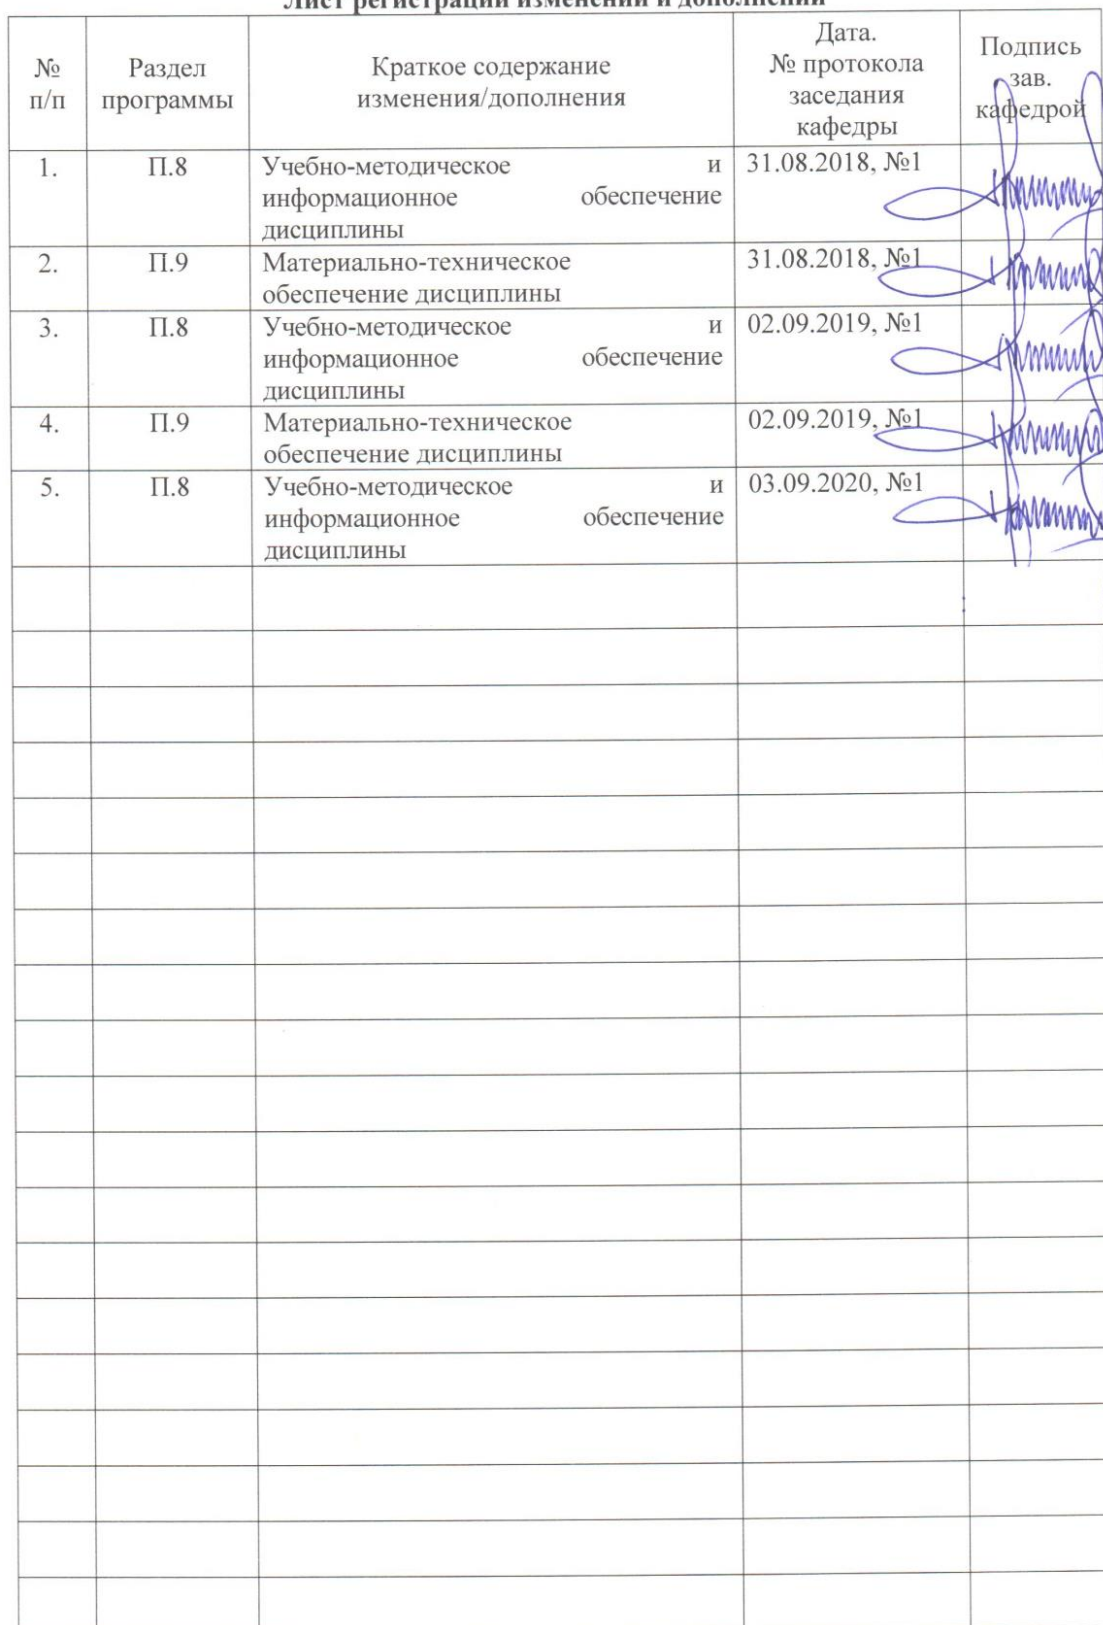 Лист регистрации изменений и дополнений
№ п/п
Раздел программы
Краткое содержание изменения/дополнения
Дата. № протокола заседания кафедры
Подпись зав. кафедрой
1.
П.8
Учебно-методическое и
информационное обеспечение
дисциплины
31.08.2018, №1
2.
П.9
Материально-техническое
обеспечение дисциплины
31.08.2018, №1
3.
П.8
Учебно-методическое и
информационное обеспечение
дисциплины
02.09.2019, №1
4.
П.9
Материально-техническое
обеспечение дисциплины
02.09.2019, №1
5.
П.8
Учебно-методическое и
информационное обеспечение
дисциплины
03.09.2020, №1